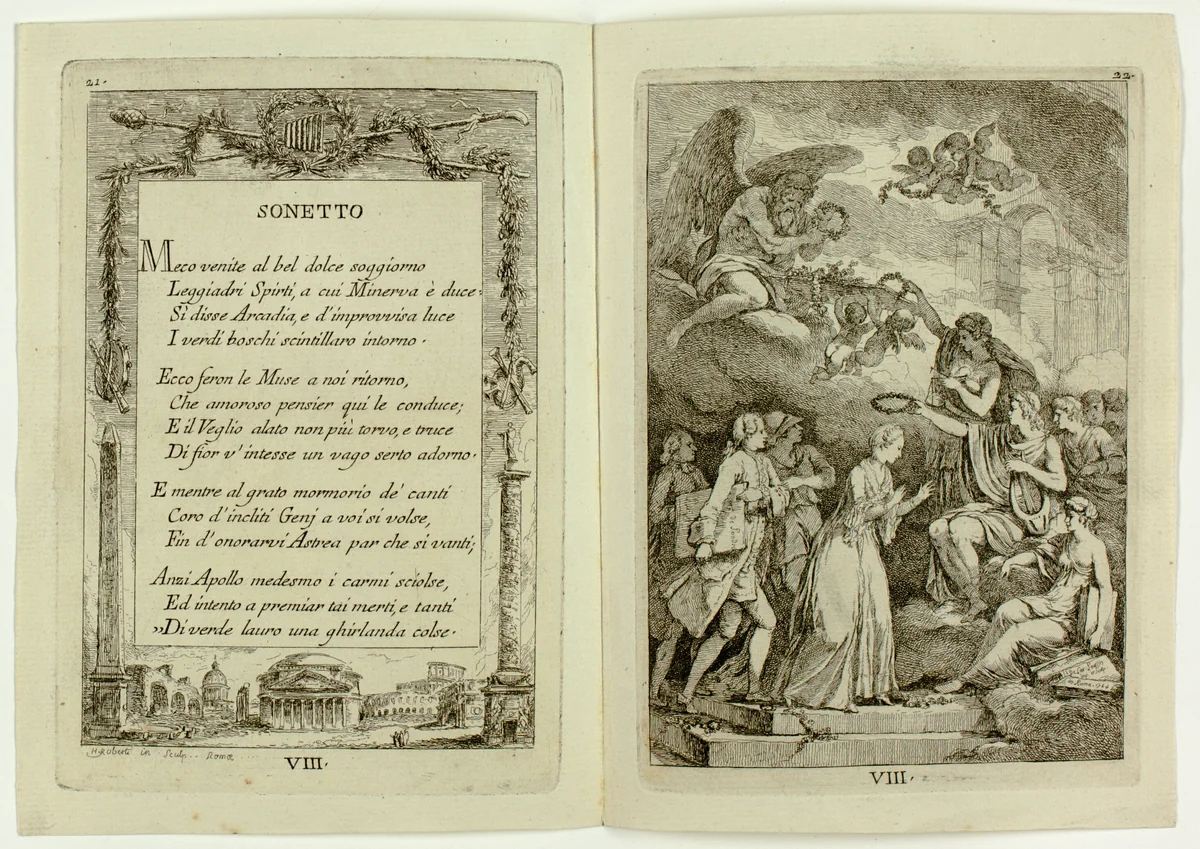 21.
SONETTO
Meco venite al bel dolce soggiorno
Leggiadri Spirti, a cui Minerva è duce:
Sì disse Arcadia, e d'improvvisa luce
I verdi boschi scintillaro intorno.
Ecco feron le Muse a noi ritorno,
Che amoroso pensier qui le conduce;
E il Veglio alato non più torvo, e truce
Di fior v'intesse un vago serto adorno.
E mentre al grato mormorio de' canti
Coro d'incliti Genj a voi si volse,
Fin d'onorarvi Astrea par che si vanti;
Anzi Apollo medesmo i carmi sciolse,
Ed intento a premiar tai merti, e tanti
"Di verde lauro una ghirlanda colse.
H. Roberti in Sculp. Romæ
VIII.
22.
VIII.